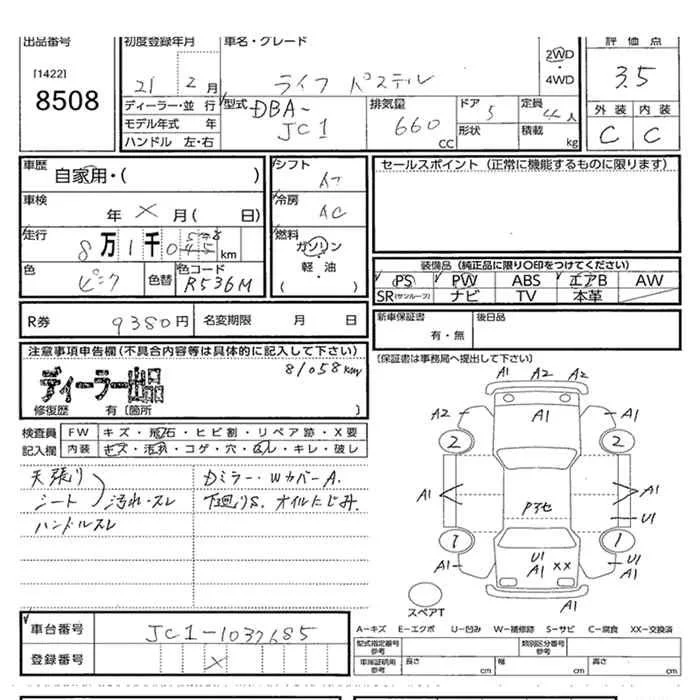 出品番号 初度登録年月 車名・グレード 評価点
[1422]
8508
21 2月 ライフ パステル 2WD・4WD 3.5
ディーラー・並行 型式 DBA-JC1 排気量 660 CC ドア 5 定員 4人 外装 内装
モデル年式 年 形状 積載 kg C C
ハンドル 左・右
車歴 自家用・( ) シフト AT セールスポイント(正常に機能するものに限ります)
車検 年 X 月( 日) 冷房 AC
走行 8万1千045 058 km 燃料 ガソリン・軽油
装備品(純正品に限り○印をつけてください)
色 ピンク 色替 色コード R536M PS PW ABS エアB AW
SR(サンルーフ) ナビ TV 本革
R券 9380円 名変期限 月 日 新車保証書 有・無 後日品
注意事項申告欄(不具合内容等は具体的に記入して下さい)
[保証書は事務局へ提出して下さい]
81058km
ディーラー出品
修復歴 有〔箇所 〕
検査員 FW キズ・飛石・ヒビ割・リペア跡・X要
記入欄 内装 キズ・汚れ・コゲ・穴・ぬし・キレ・破レ
天張り Dミラー・WカバーA.
シート 汚れ・スレ 下廻りS. オイルにじみ.
ハンドルスレ
A1 A2 A2
A2 A1 A1
2 2
A1 A1
P3セ U1
1 1
A1 U1 A1 XX U1 A1
A1
スペアT
A−キズ E−エクボ U−凹み W−補修跡 S−サビ C−腐食 XX−交換済
車台番号 JC1-1037685
型式指定番号 参考 類別区分番号 参考
登録番号 X
車庫証明用 参考 長さ cm 幅 cm 高さ cm